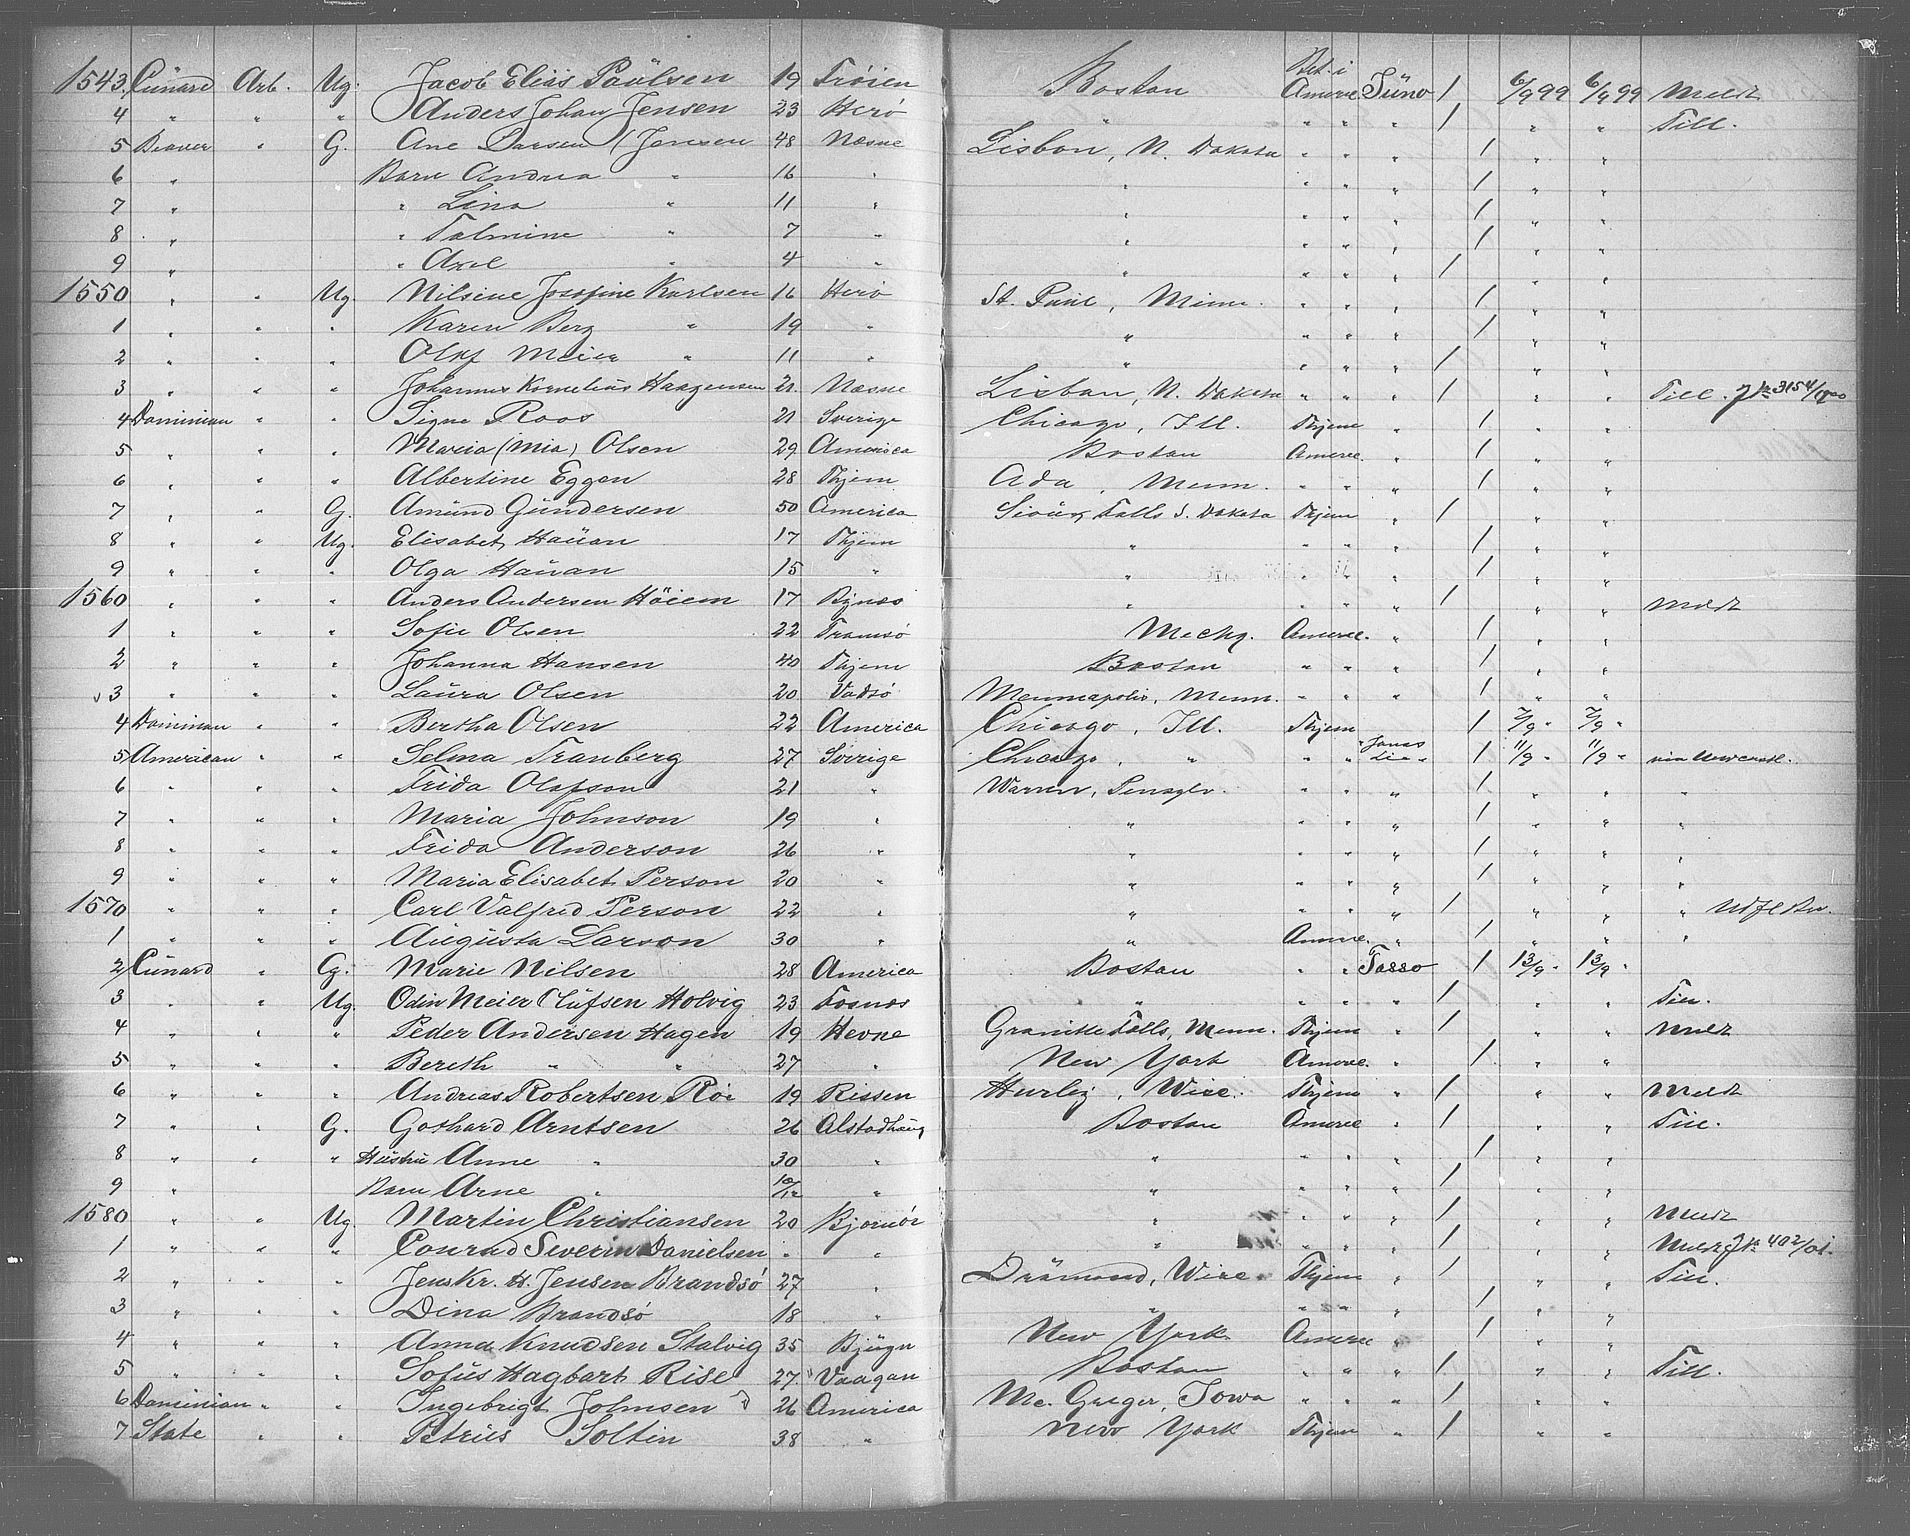 1543 Cunard Arb. Ug. Jacob Elias Paulsen 19 Trøien Boston Bet. i Americ. Juno 1 6/9 99 6/9 99 Meldt
4 " " " Anders Johan Jensen 23 Herø " " " " 1 " " Till.
5 Beaver " G. Ane Larsen (Jensen 48 Næsne Lisbon, N. Dakota " " " 1 " "
6 " Barn Andrea " 16 " " " " " 1 " "
7 " " Lina " 11 " " " " " 1 " "
8 " " Talmine " 7 " " " " " 1 " "
9 " " Axel " 4 " " " " " 1 " "
1550 " " Ug. Nilsine Josefine Karlsen 16 Herø St. Paul, Minn. " " " 1 " "
1 " " " Karen Berg " 19 " " " " " 1 " "
2 " " " Olaf Meier " 11 " " " " " 1 " "
3 " " " Johannes Kornelius Haagensen 21. Næsne Lisbon, N. Dakota " " " 1 " " Till. Jk 3154/1900
4 Dominion " " Signe Roos 21 Sverige Chicago, Ill. Thjem " " 1 " "
5 " " " Maria (Mia) Olsen 29 America Boston Americ. " 1 " "
6 " " " Albertine Eggen 28 Thjem Ada, Minn. " " " 1 " "
7 " " G. Amund Gundersen 50 America Sioux Falls S. Dakota Thjem " 1 " "
8 " " Ug. Elisabet Hauan 17 Thjem " " " " 1 " "
9 " " " Olga Hauan 15 " " " " " 1 " "
1560 " " " Anders Andersen Höiem 17 Bynes " " " " 1 " " Meldt
1 " " " Sofie Olsen 22 Tromsø Mechg. Americ. " 1 " "
2 " " " Johanna Hansen 40 Thjem Boston " " " 1 " "
3 " " " Laura Olsen 20 Vadsø Menneapolis, Minn. " " " 1 " "
4 Dominion " " Bertha Olsen 22 America Chicago, Ill. Thjem 1 7/9 " 7/9 "
5 American " " Selma Tranberg 27 Sverige Chicago, " " " Jonas Lie 1 11/9 " 11/9 " via Newcastl.
6 " " " Frida Olofson 21 " Warren, Pensylv. " " " 1 " " "
7 " " " Maria Johnson 19 " " " " " 1 " " "
8 " " " Frida Anderson 26 " " " " " 1 " " "
9 " " " Maria Elisabet Person 20 " " " " " 1 " " "
1570 " " " Carl Valfred Person 22 " " " " " 1 " " "
1 " " " Augusta Larson 30 " " Americ. " 1 " " "
2 Cunard " G. Marie Nilsen 28 America Boston " " Tasso 1 13/9 " 13/9 "
3 " " Ug. Odin Meier Olufsen Holvig 23 Fosnæs " " " " 1 " " Till.
4 " " " Peder Andersen Hagen 19 Hevne Granitte Falls, Menn. Thjem " 1 " " Meldt
5 " " " Bereth " " 27 " New York Americ. " 1 " "
6 " " " Andreas Robertsen Röi 19 Rissen Hurley, Wisc. Thjem " 1 " " Meldt
7 " " G. Gothard Arntsen 26 Alstadhaug Boston Americ " 1 " " Till.
8 " " " Hustru Anne " 30 " " " " " 1 " "
9 " Barn Arne " 10/12 " " " " " 1 " "
1580 " " Ug. Martin Christiansen 20 Bjørnör " " " " 1 " " Meldt
1 " " " Conrad Severin Danielsen " " " " " " 1 " " Meldt Jk 402/01.
2 " " " Jens Kr. H. Jensen Brandsö 27 " Drümond, Wisc. Thjem " 1 " " Till.
3 " " " Dina Brandsö 18 " " " " " 1 " "
4 " " " Anna Knudsen Stalvig 35 Bjugn New York Americ " 1 " "
5 " " " Sofus Hagbart Rise 27. Vaagan Boston " " " 1 " " Till.
6 Dominion " " Ingebrigt Johnsen 26 America Mc. Greger, Iowa " " " 1 " "
7 State " " Petrus Soltin 38 " New York Thjem " 1 " "